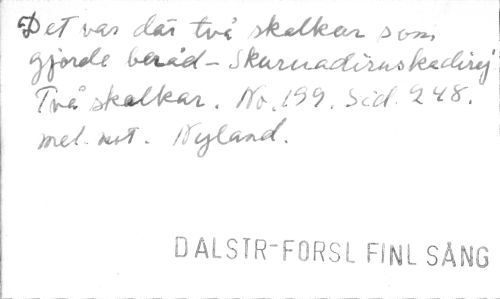 Det var där två skalkar som
gjorde beråd - Skurnadiruskadirej
Två skalkar. No. 199. Sid. 248.
mel. not. Nyland.
DALSTR-FORSL FINL SÅNG